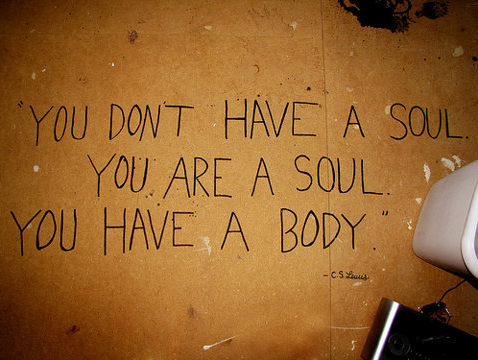 "YOU DON'T HAVE A SOUL.
YOU ARE A SOUL.
YOU HAVE A BODY."
- C.S. Lewis